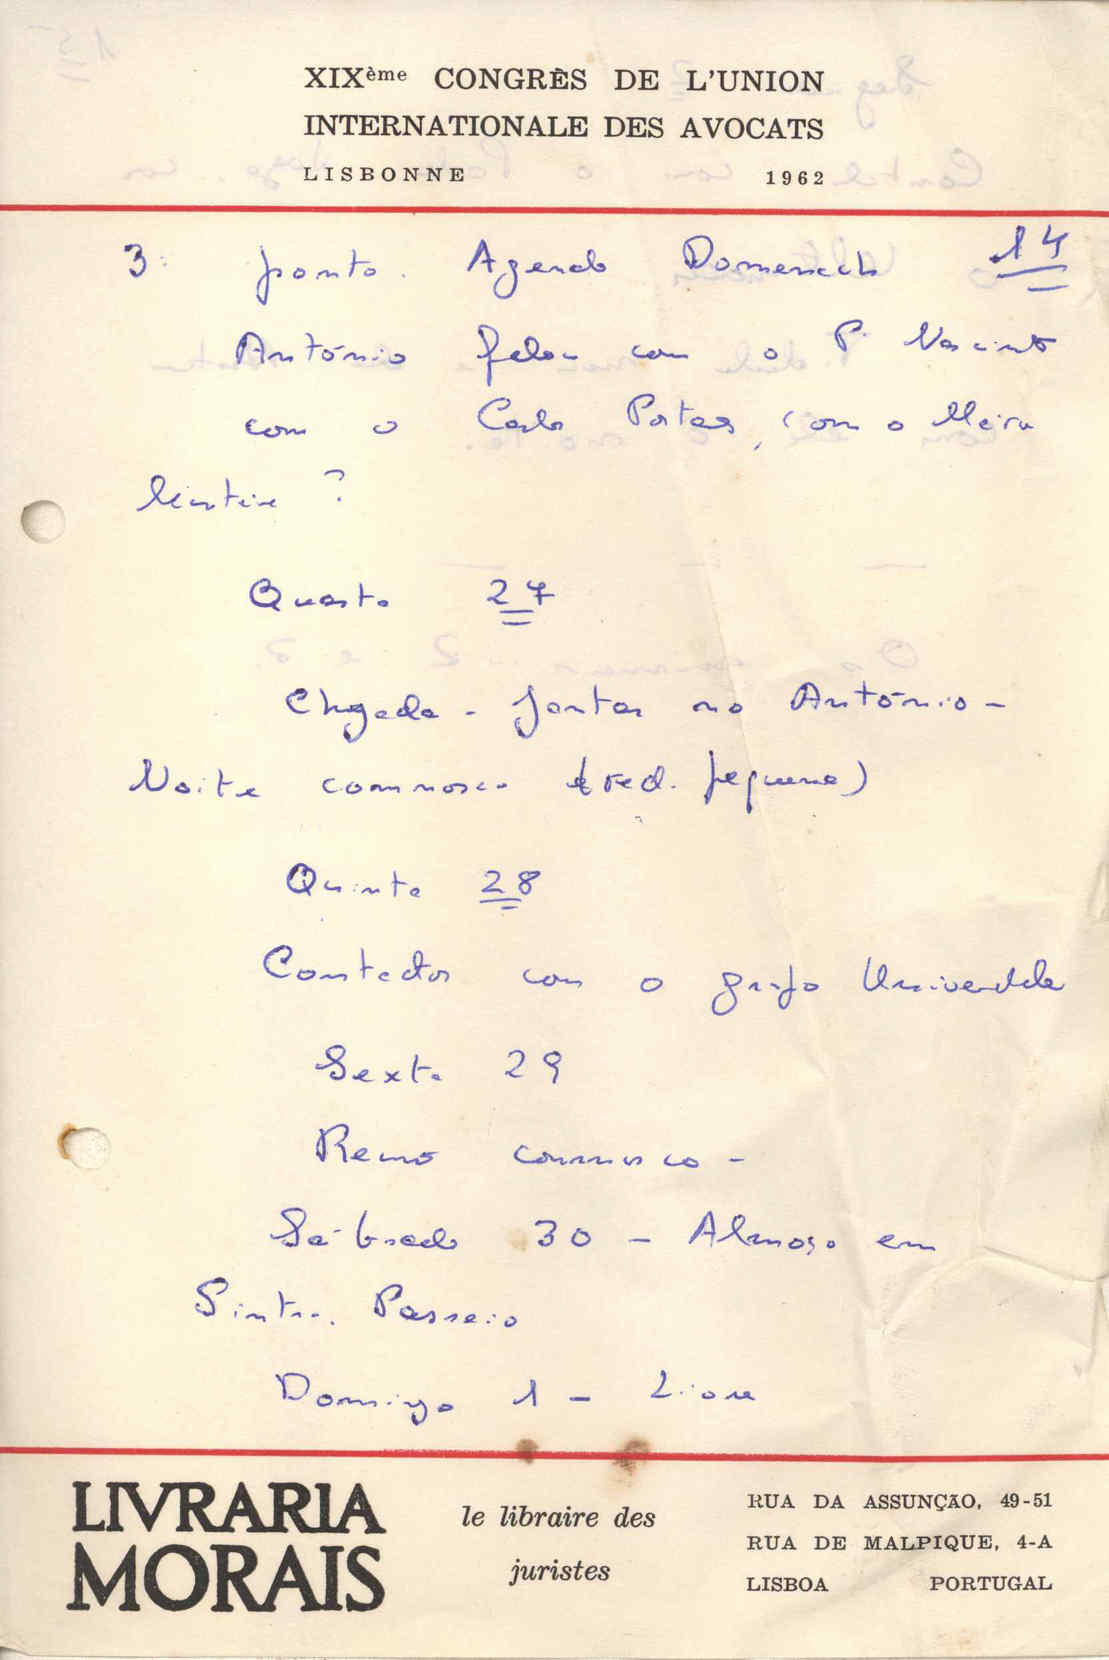 XIXème CONGRÈS DE L'UNION
INTERNATIONALE DES AVOCATS
LISBONNE 1962
14
3: ponto. Agenda Domenach
António falou com o P. Nascimto
com o Carlos Portas, com o
?
Quarta 27
Chegada - Jantar no António -
Noite connosco (red. pequena)
Quinta 28
Contactos com o grupo
Sexta 29
connosco -
Sábado 30 - Almoço em
Sintra. Passeio
Domingo 1 - Livre
LIVRARIA
MORAIS
le libraire des
juristes
RUA DA ASSUNÇÃO, 49-51
RUA DE MALPIQUE, 4-A
LISBOA PORTUGAL